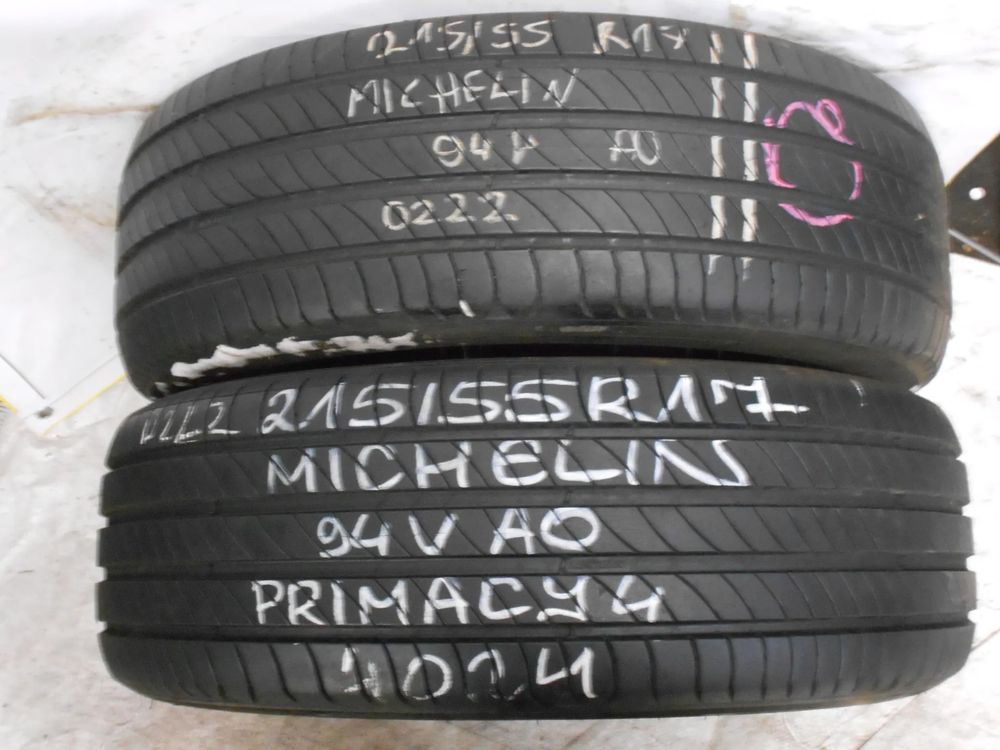 215/55 R17
MICHELIN
94V AO
0222
215/55R17
MICHELIN
94V AO
PRIMACY4
1024